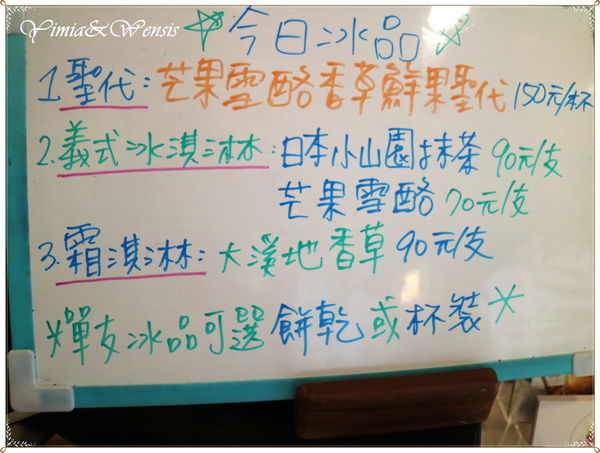 Yimia&Wensis
今日冰品
1.聖代:芒果雪酪香草鮮果聖代 150元/杯
2.義式冰淇淋:日本小山園抹茶 90元/支
芒果雪酪 70元/支
3.霜淇淋:大溪地香草 90元/支
*單支冰品可選餅乾或杯裝*